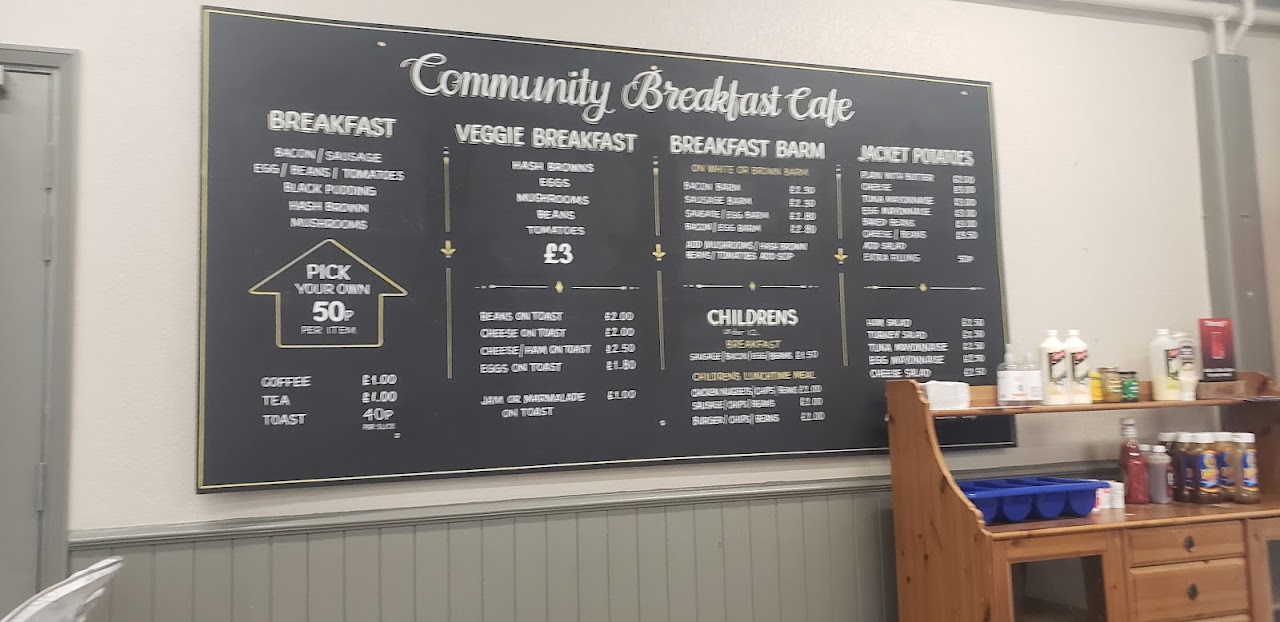 Community Breakfast Cafe
BREAKFAST
BACON / SAUSAGE
EGG / BEANS / TOMATOES
BLACK PUDDING
HASH BROWN
MUSHROOMS
PICK
YOUR OWN
50P
PER ITEM
COFFEE £1.00
TEA £1.00
TOAST 40P
PER SLICE
VEGGIE BREAKFAST
HASH BROWNS
EGGS
MUSHROOMS
BEANS
TOMATOES
£3
BEANS ON TOAST £2.00
CHEESE ON TOAST £2.00
CHEESE/HAM ON TOAST £2.50
EGGS ON TOAST £1.80
JAM OR MARMALADE £1.00
ON TOAST
BREAKFAST BARM
ON WHITE OR BROWN BARM
BACON BARM £2.30
SAUSAGE BARM £2.30
SAUSAGE/EGG BARM £2.80
BACON/EGG BARM £2.80
ADD MUSHROOMS/HASH BROWN
BEANS/TOMATOES ADD 50P
CHILDRENS
Under 12
BREAKFAST
SAUSAGE/BACON/EGG/BEANS £1.50
CHILDRENS LUNCHTIME MEAL
CHICKEN NUGGETS/CHIPS/BEANS £2.00
SAUSAGE/CHIPS/BEANS £2.00
BURGER/CHIPS/BEANS £2.00
JACKET POTATOES
PLAIN WITH BUTTER
CHEESE £3.00
TUNA MAYONNAISE £3.00
EGG MAYONNAISE £3.00
BAKED BEANS £3.00
CHEESE/BEANS £3.50
ADD SALAD
EXTRA FILLING 50P
HAM SALAD £2.50
TURKEY SALAD £2.50
TUNA MAYONNAISE £2.50
EGG MAYONNAISE £2.50
CHEESE SALAD £2.50